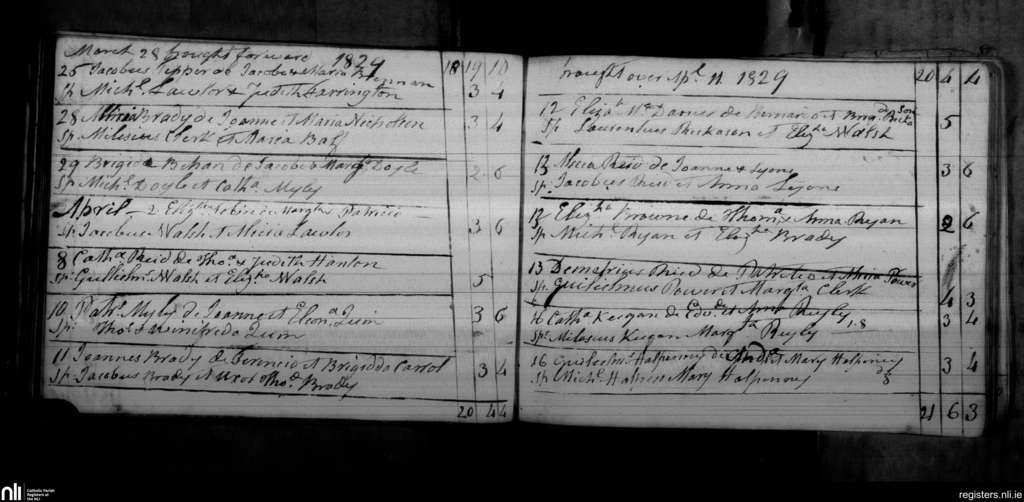 March 28 brought forward 1829 18 19 10
25 Jacobus Tipper de Jacobo & Maria Brennan
Sp Michl. Lawlor & Judith Farrington 3 4
28 Maria Brady de Joanne et Maria Nicholson 3 4
Sp Milesius Clerk et Maria
29 Brigida Behan de Jacobo & Margt Doyle 2 6
Sp Michl. Doyle et Catha. Myley
April – 2 Elizth Tobin de Margta & Patricio
Sp. Jacobus Walsh et Maria Lawlor 3 6
8 Catha Reid de Thoa. & Judith Hanlon
Sp. Guillielm. Walsh et Elizth Walsh 5
10 Path. Myley de Joanne et Eleona. Quin 3 6
Sp. Thos. & Winifreda Quin
11 Joannes Brady de Terencio et Brigidda Carrol
Sp. Jacobus Brady et uxor Thos. Brady 3 4
20 4 4
brought over Apl. 11. 1829 20 4 4
12 Elizth de Bernardo et Brig.
Sp. Laurentius et Elizth Walsh 5
13 Maria Reid de Joanne & Lyons 3 6
Sp. Jacobus Reid et Anna Lyons
12 Elizth Browne de Thoma & Anna Ryan 2 6
Sp. Michl. Ryan et Elizth Brady
13 Demetrius Reid de Patritio et Maria Power
Sp. Guilielmus Power et Margta Clerk 4 3
16 Catha Keegan de Edwd. et Anna Reyly 3 4
Sp. Milesius Keegan Margta Reyly 1.8
16 Halpenny de Andw et Mary Halpenny 3 4
Sp. Michl. Halpen Mary Halpenny
21 6 3
nli
Catholic Parish
Registers at
the NLI
registers.nli.ie